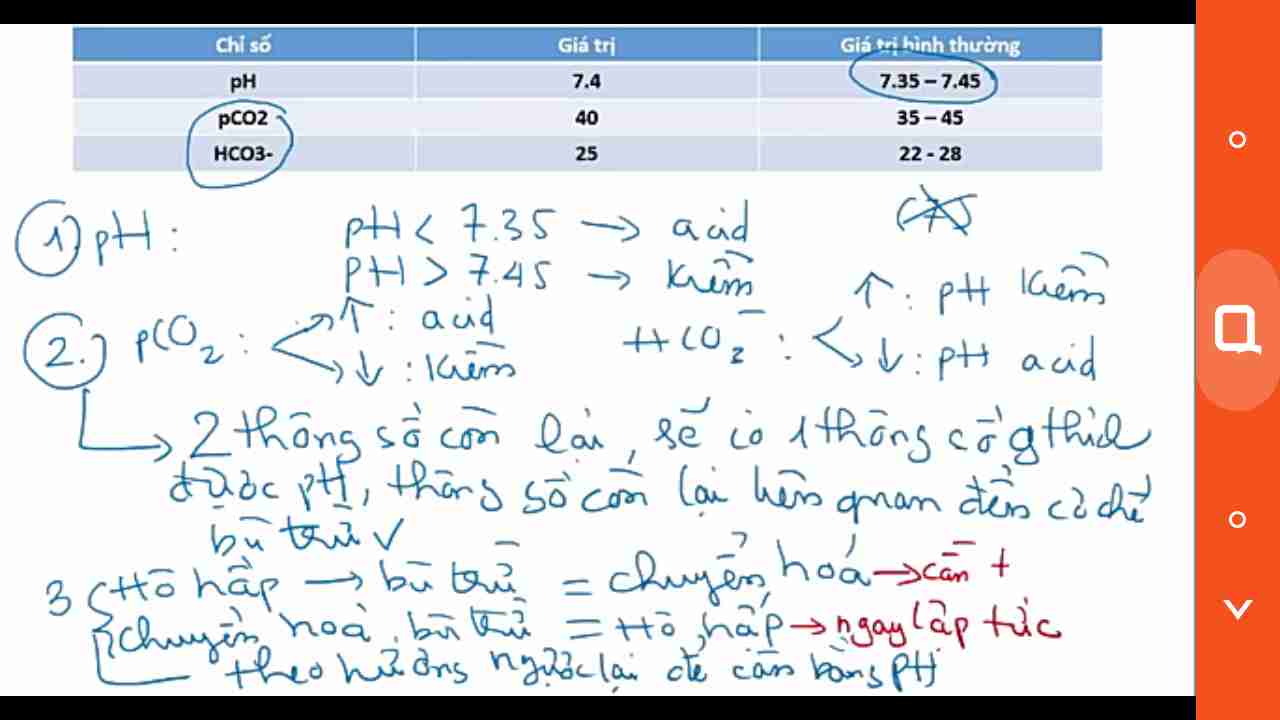 Chỉ số Giá trị Giá trị bình thường
pH 7.4 7.35 – 7.45
pCO2 40 35 – 45
HCO3- 25 22 - 28
1) pH : pH < 7.35 → acid
pH > 7.45 → kiềm
2. pCO2 : ↑ : acid
↓ : kiềm
HCO2⁻ : ↑ : pH kiềm
↓ : pH acid
2 thông số còn lại, sẽ có 1 thông số gthích
được pH, thông số còn lại liên quan đến cơ chế
bù trừ
3 Hô hấp → bù trừ = chuyển hoá → cần t
chuyển hoá, bù trừ = Hô hấp → ngay lập tức
theo hướng ngược lại để cân bằng pH